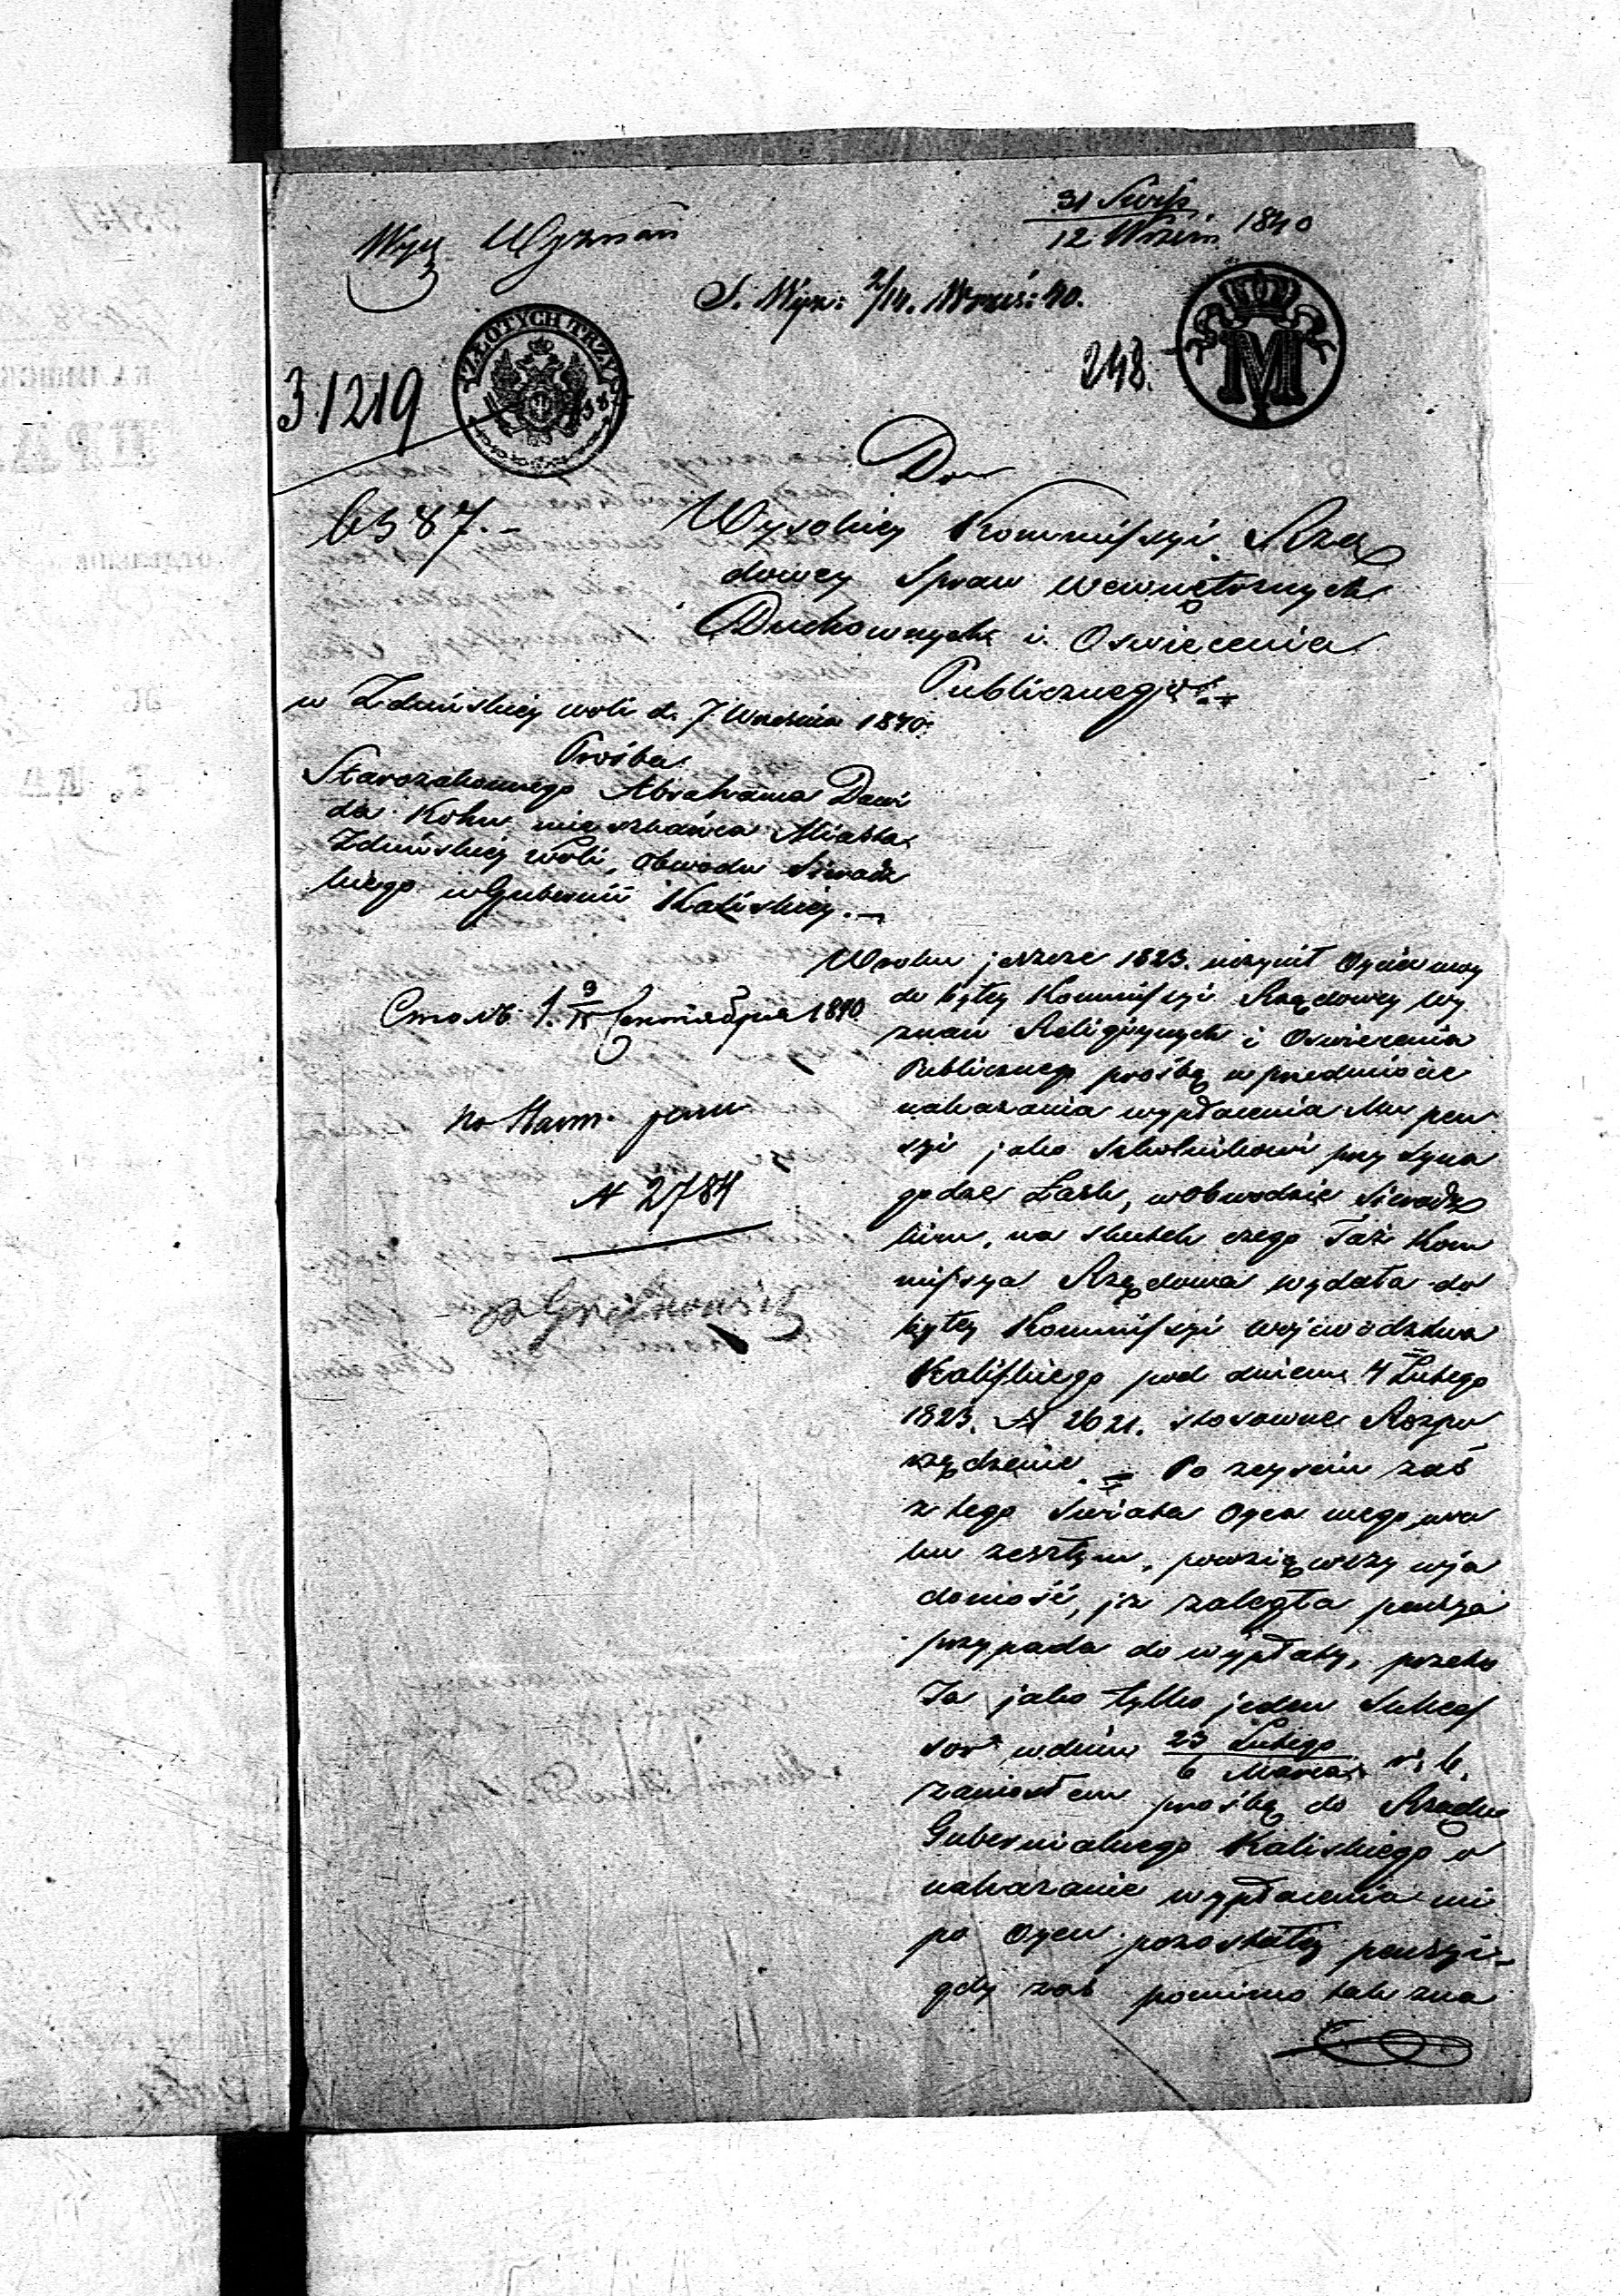 31 Sierp
12 Wrześn 1840
Wyz. Wyznań
S. Wyzn: 2/14. Wrześ: 40.
ZŁOTYCH TRZY
M
248.
31219
6587.-
Do
Wysokiey Kommissyi Rzą
dowey Spraw Wewnętrznych
Duchownych i Oswiecenia
Publicznego
w Zduńskiey woli d. 7 Września 1840.
Prośba
Starozakonnego Abrahama Dawi
da Kohn mieszkańca Miasta
Zduńskiey Woli, Obwodu Sieradz
kiego w Gubernii Kaliskiey.-
W roku jeszcze 1823. uczynił Oyciec moy
do byłey Kommissyi Rządowey Wy
znań Religiynych i Oswiecenia
Publicznego prośbę w przedmiocie
nakazania wypłacenia Mu pen
syi jako Szkolnikowi przy Syna
godze Łask, w Obwodzie Sieradz
kim, na skutek czego Taż Kom
missya Rządowa wydała do
byłey Kommissyi Wojewodztwa
Kalisskiego pod dniem 4 Lutego
1823. N 2621. stosowne Rozpo
rządzenie. = Po zeyściu zaś
z tego Świata Oyca mego, w ro
ku zeszłym, powziąwszy wia
domość, iż zaległa pensya
przypada do wypłaty, przeto
Ja jako tylko jeden Sukces
sor w dniu 23 Lutego
6 Marca r. b.
zaniosłem prośbę do Rządu
Gubernialnego Kaliskiego o
nakazanie wypłacenia mi
po Oycu pozostałey pensyi-
gdy zaś pomimo tak zna
N 2784